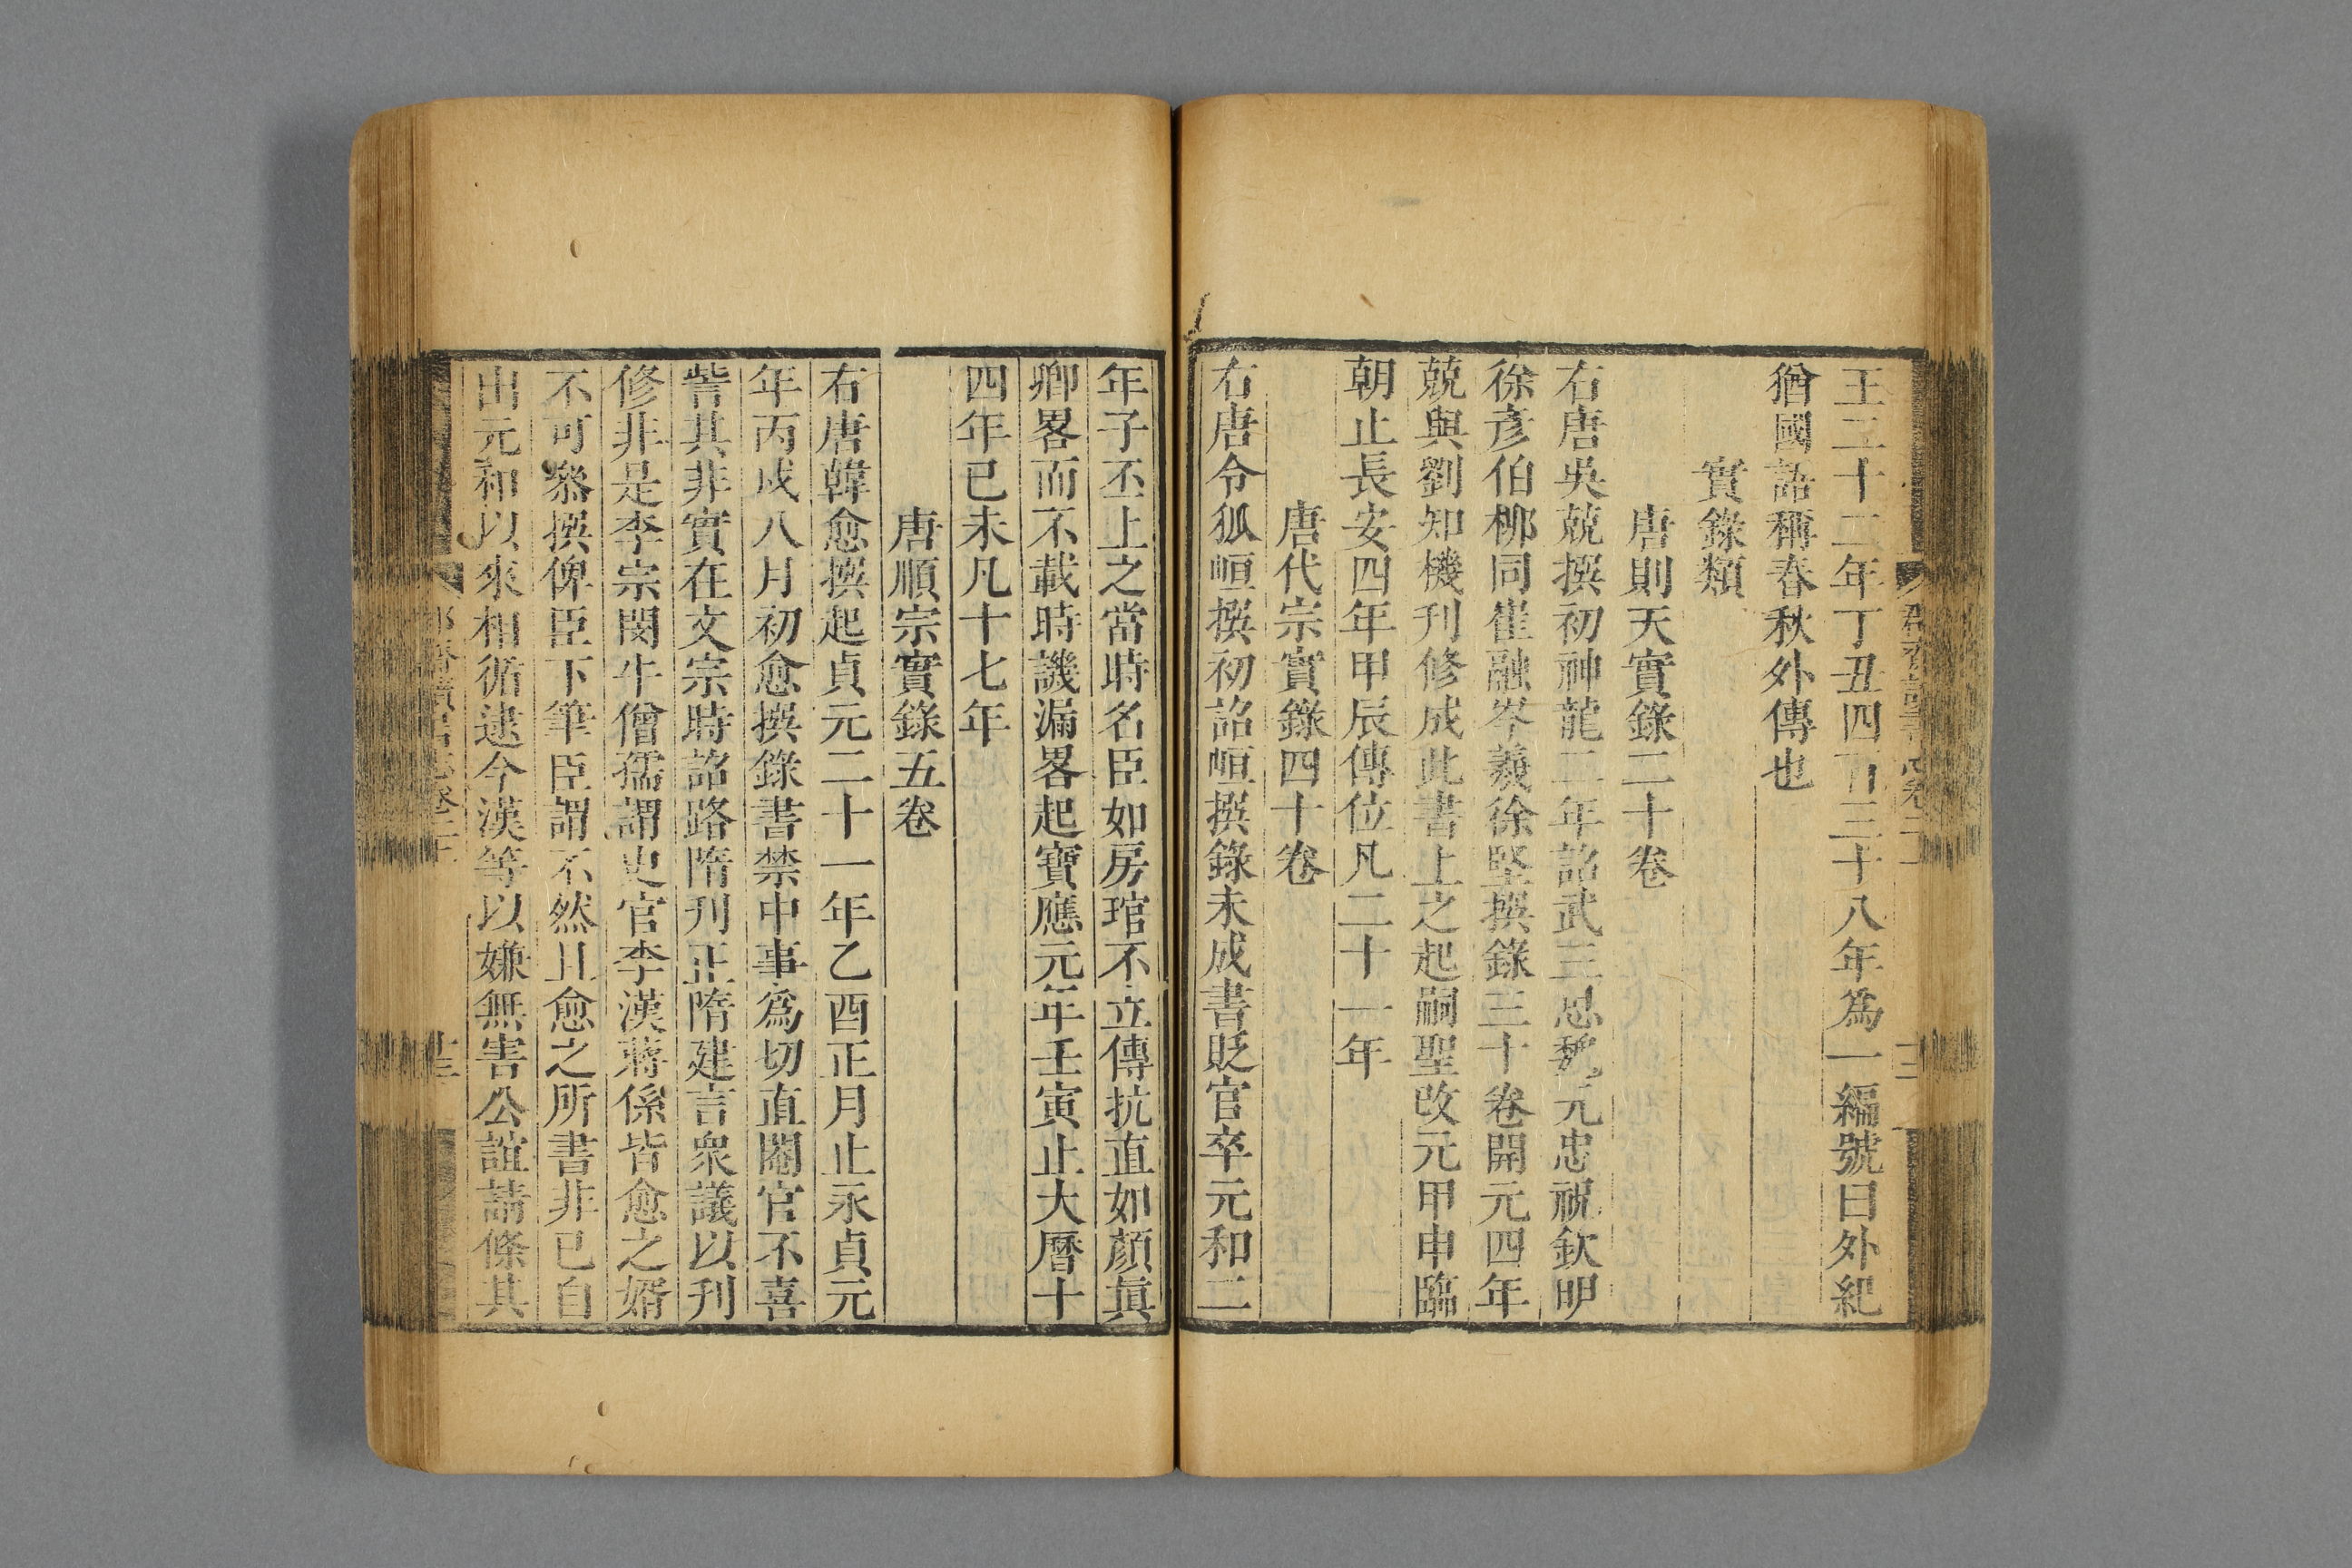 王二十二年丁丑四百三十八年為一編號曰外紀
猶國語稱春秋外傳也
實錄類
唐則天實錄二十卷
右唐吳兢撰初神龍二年詔武三思魏元忠祝欽明
徐彥伯栁同崔融岑羲徐堅撰錄三十卷開元四年
兢與劉知機刊修成此書上之起嗣聖改元甲申臨
朝止長安四年甲辰傳位凡二十一年
唐代宗實錄四十卷
右唐令狐峘撰初詔峘撰錄未成書貶官卒元和二
年子丕上之當時名臣如房琯不立傳抗直如顏眞
卿畧而不載時譏漏畧起寶應元年壬寅止大曆十
四年已未凡十七年
唐順宗實錄五卷
右唐韓愈撰起貞元二十一年乙酉正月止永貞元
年丙戍八月初愈撰錄書禁中事為切直閹官不喜
訾其非實在文宗時詔路隋刊正隋建言衆議以刊
修非是李宗閔牛僧孺謂史官李漢蔣係皆愈之婿
不可叅撰俾臣下筆臣謂不然且愈之所書非已自
出元和以來相循逮今漢等以嫌無害公誼請條其